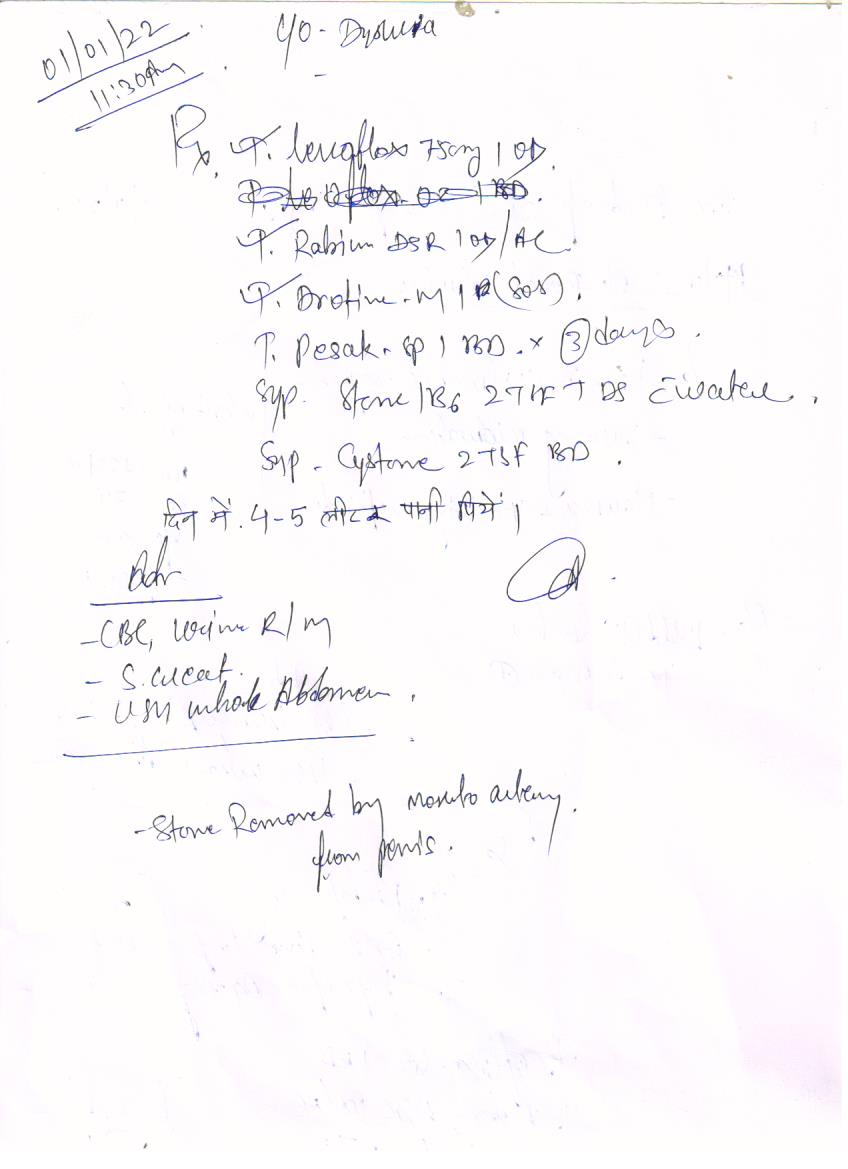 01/01/22
11:30
C/O - Dysuria
Rx T. levoflox 750mg 1 OD
T. Rabium DSR 1 OD/AC.
T. Drotine-M 1 (SOS).
T. Pesak-SP 1 BD. x 3 days.
Syp. Stone 1B6 2 TSF TDS c̄ water.
Syp - Cystone 2 TSF BD.
दिन में. 4-5 लीटर पानी पियें।
Adv
- CBC, Urine R/M
- S. creat.
- USG whole Abdomen.
- Stone Removed by Mosquito artery.
from penis.